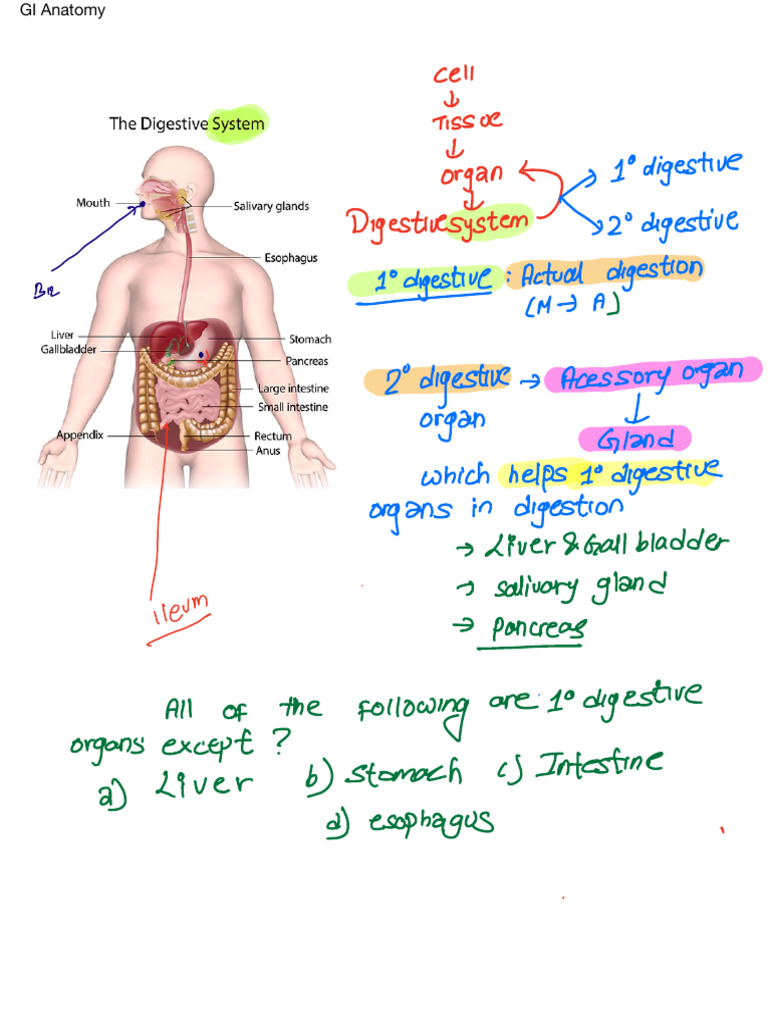 GI Anatomy
The Digestive System
Mouth
Salivary glands
Esophagus
B12
Liver
Gallbladder
Stomach
Pancreas
Large intestine
Small intestine
Appendix
Rectum
Anus
ileum
cell
↓
Tissue
↓
organ
↓
Digestive system
→ 1° digestive
→ 2° digestive
1° digestive : Actual digestion
(M → A)
2° digestive → Acessory organ
organ
↓
Gland
which helps 1° digestive
organs in digestion
→ Liver & Gall bladder
→ salivary gland
→ Pancreas
All of the following are 1° digestive
organs except ?
a) Liver b) stomach c) Intestine
d) esophagus